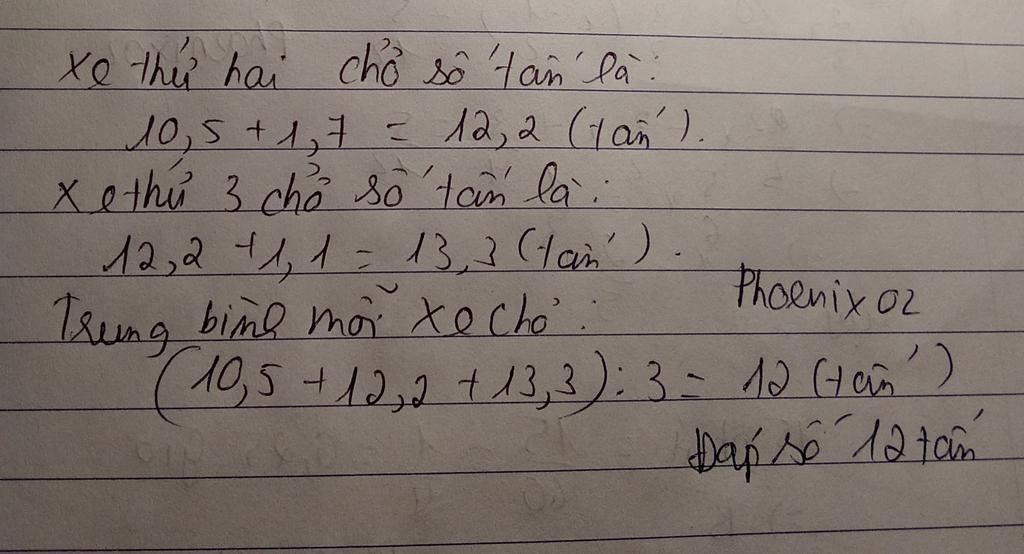 xe thứ hai chở số tấn là:
10,5 + 1,7 = 12,2 (tấn).
xe thứ 3 chở số tấn là:
12,2 + 1,1 = 13,3 (tấn).
Phoenix02
Trung bình mỗi xe chở:
(10,5 + 12,2 + 13,3) : 3 = 12 (tấn)
Đáp số 12 tấn